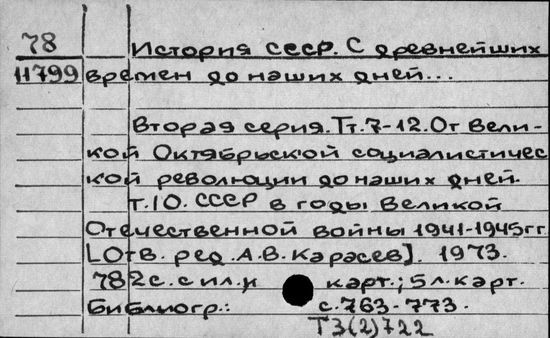 78
История СССР. С древнейших
11799 времен до наших дней...
Вторая серия. Тт. 7-12. От Вели-
кой Октябрьской социалистичес
кой революции до наших дней.
Т. 10. СССР в годы Великой
Отечественной войны 1941-1945гг
[Отв. ред. А.В. Карасев]. 1973.
782с. с ил. и карт.; 5л. карт.
Библиогр.: с. 763-773.
Т3(2)722